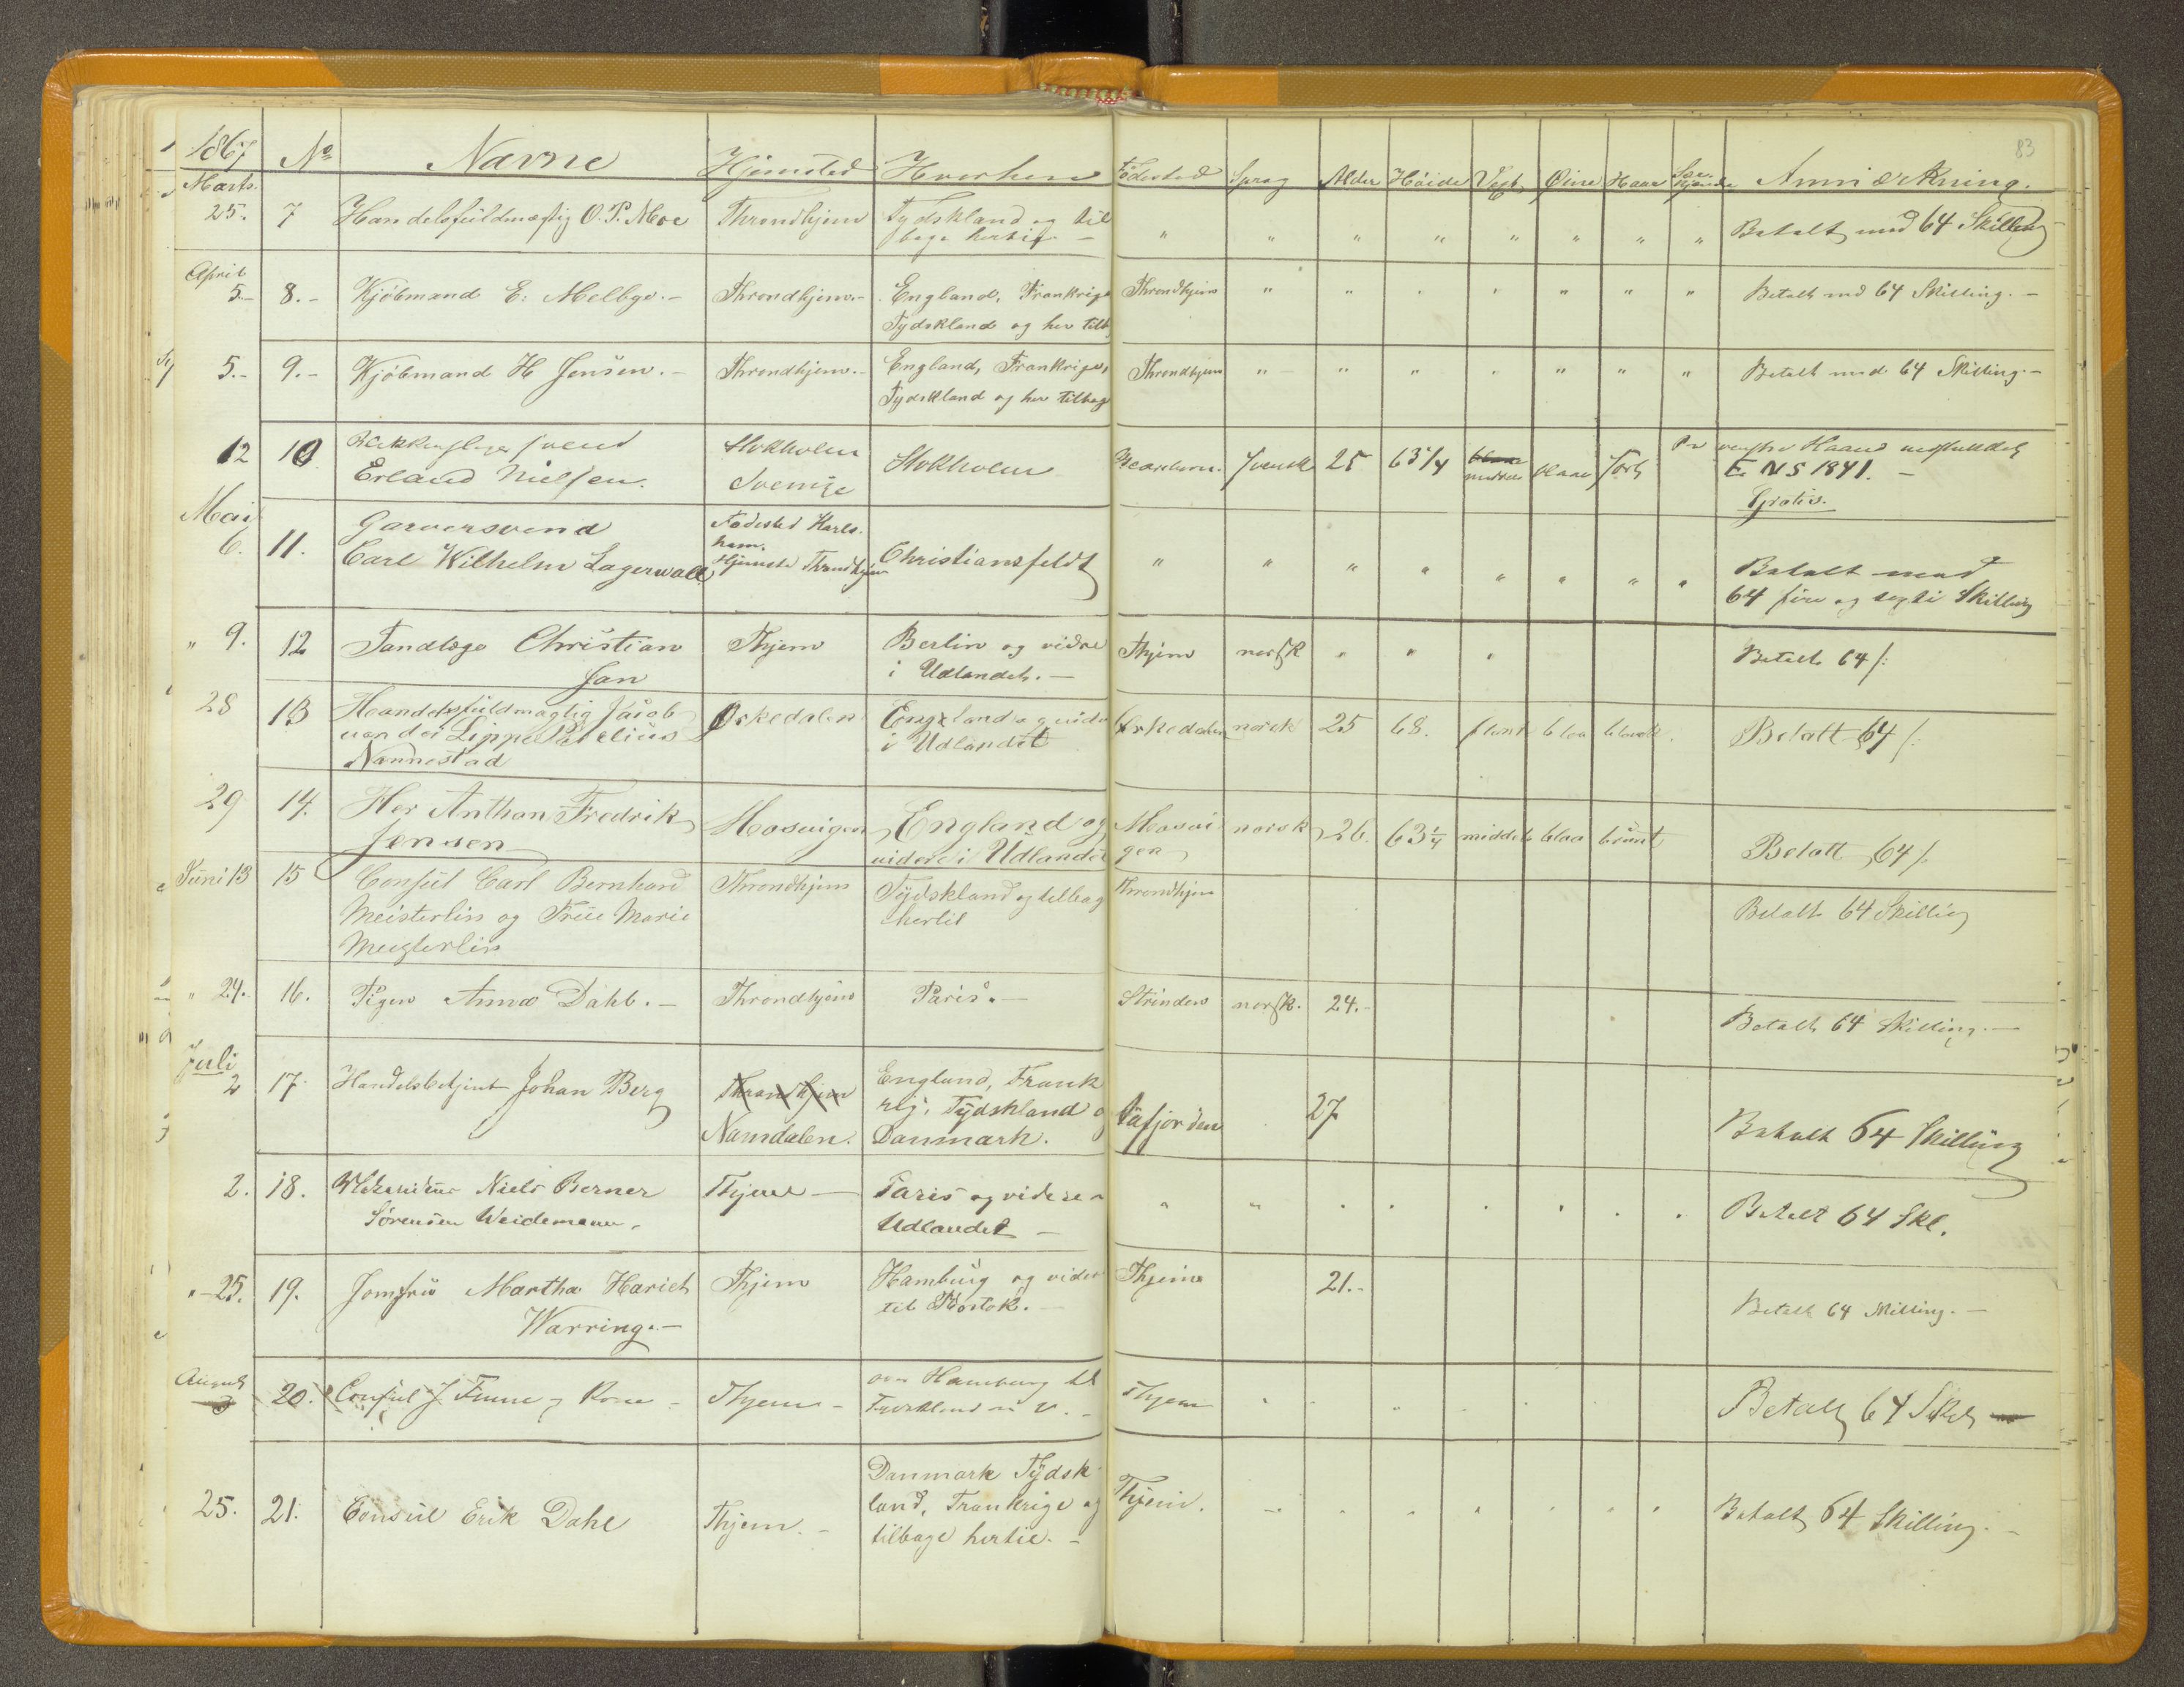 83
1867 No Navne Hjemsted Hvorhen Födested Sprog Alder Höide Vext Öine Haar Anmærkning.
Marts.
25. 7 Handelsfuldmægtig O. P. Moe Throndhjem Tydskland og til " " " " " " " " Betalt med 64 Skilling
bage hertil –
April
5.– 8.– Kjöbmand E. Melbye.– Throndhjem.– England, Frankrige Throndhjem " " " " " " " Betalt md 64 Skilling.–
Tydskland og her tilb
5.– 9.– Kjöbmand H Jensen.– Throndhjem.– England, Frankrige, Throndhjem " " " " " " " Betalt med 64 Skilling.–
Tydskland og her tilbage
12 10 Svend Stokholm Stokholm Svensk 25 63 1/4 blaae sort Paa venstre Haand
Erland Nielsen. Sverige E N S 1841.–
Gratis.
Mai
6. 11. Garversvend Fødested Karls-
ham.
Carl Wilhelm Lagerwall Hjemsted Throndhjem Christiansfeldt " " " " " " " " Betalt med
64 fire og segsti Skilling
" 9. 12 Tandlæge Christian Thjem Berlin og vidre Thjem norsk " " " Betalt 64 /:
Jan i Udlandet.–
28 13 Handelsfuldmægtig Jacob Orkedalen England og vidre Orkedalen norsk 25 68. blaa Betalt 64 /:
van der Lippe Parelius i Udlandet
Nannestad
29 14. Her Anthon Fredrik Mosvigen England og Mosvi norsk 26 63 1/4 middels blaa brünt Betalt 64 /:
Jensen videre i Udlandet gen
Juni 13 15 Consul Carl Bernhard Throndhjem Tydskland og tilbage Throndhjem Betalt 64 Skilling
Meisterlin og Frue Marie hertil
Meisterlin
" 24. 16. Pigen Anna Dahl.– Throndhjem Paris.– Strinden norsk. 24.– Betalt 64 Skilling.–
Juli
2 17. Handelsbetjent Johan Berg Throndhjem England, Frank
rig, Tydskland og 27 Betalt 64 Skilling
Namdalen. Danmark.
2. 18. Niels Berner Thjem – Paris og videre " " " " " " " " Betalt 64 Skl.
Sörensen Weidemann. Udlandet –
" 25. 19. Jomfru Martha Hariet Thjem Hamburg og vider Thjem 21.– Betalt 64 Skilling.–
Warring.– til Rostok.–
August
3 20. Consul J Finne og Kone – Thjem – over Hamburg til Thjem " " " " " " " Betalt 64 Skil
25. 21. Consul Erik Dahl Thjem.– Danmark Tydsk Thjem. " " " " " " " Betalt 64 Skilling.–
land, Frankrige og
tilbage hertil.–